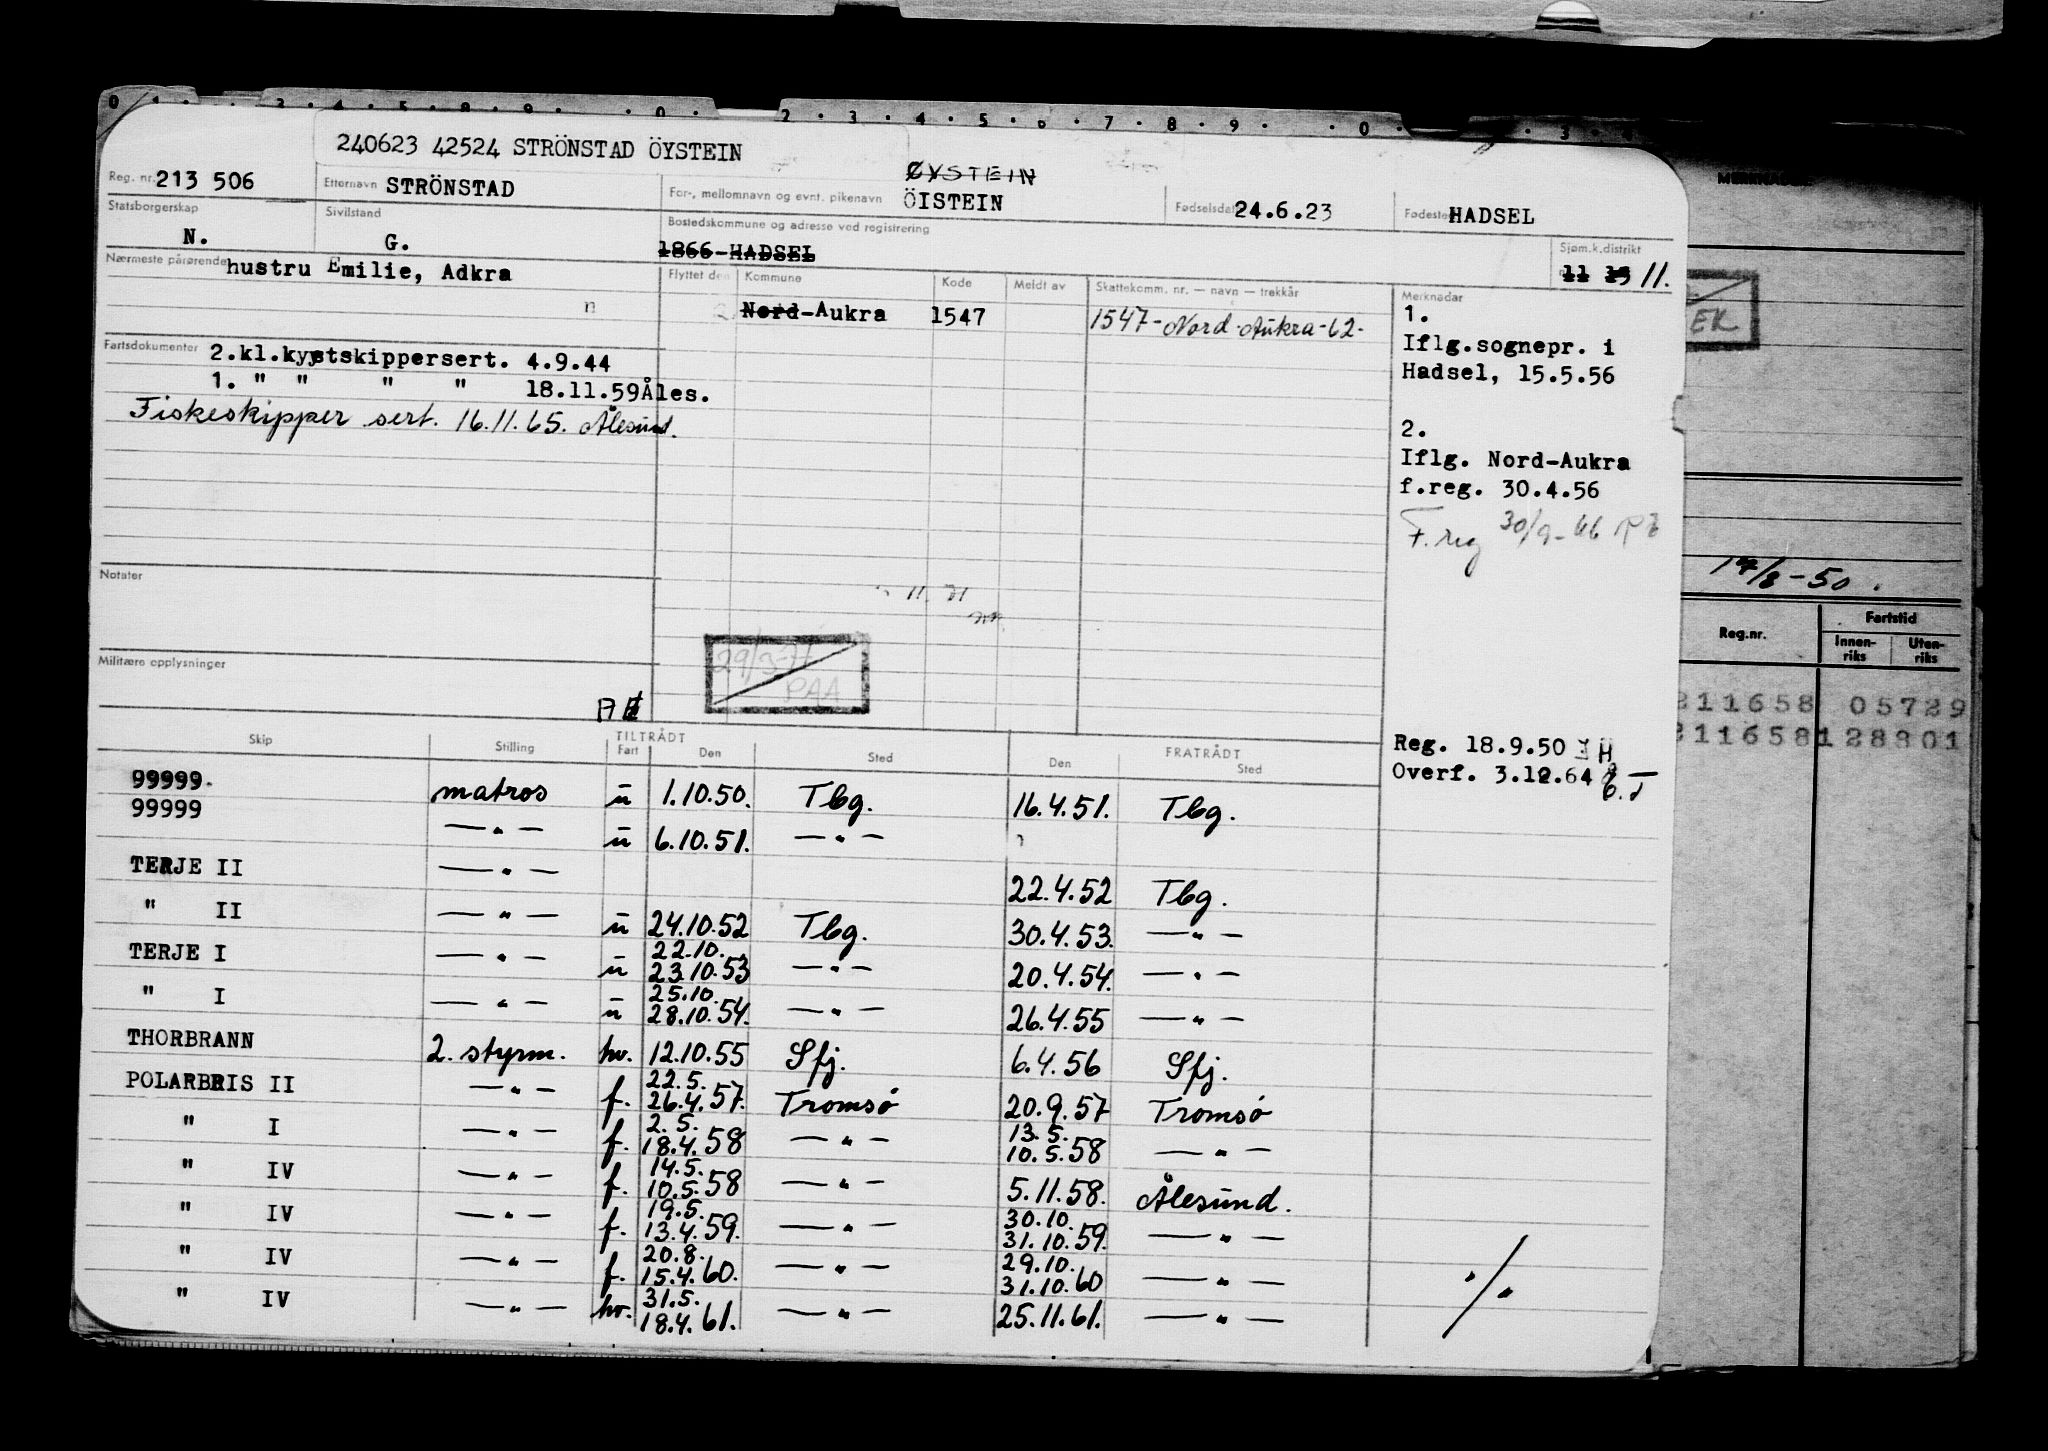 240623 42524 STRÖNSTAD ÖYSTEIN
Reg. nr. 213 506 Etternavn STRÖNSTAD For-, mellomnavn og evnt. pikenavn ØYSTEIN ÖISTEIN Fødselsdato 24.6.23 Fødested HADSEL
Statsborgerskap N. Sivilstand G. Bostedskommune og adresse ved registrering 1866-HADSEL Sjøm.k.distrikt 11 15 11.
Nærmeste pårørende hustru Emilie, Adkra
Flyttet den Kommune Kode Meldt av Skattekomm. nr. — navn — trekkår Merknader
2. Nord-Aukra 1547 1547-Nord-Aukra-62.
1.
Iflg.sognepr. i
Hadsel, 15.5.56
2.
Iflg. Nord-Aukra
f.reg. 30.4.56
F.reg 30/9-66
Fartsdokumenter 2.kl.kystskippersert. 4.9.44
1. " " " " 18.11.59Åles.
Fiskeskipper sert. 16.11.65. Ålesund.
Notater
29/3-77
PAA
Militære opplysninger
Reg. 18.9.50
Overf. 3.12.64
Skip Stilling TILTRÅDT Fart Den Sted FRATRÅDT Den Sted
99999 matros u 1.10.50. Tbg. 16.4.51. Tbg.
99999 —"— u 6.10.51. —"—
TERJE II —"— 22.4.52 Tbg.
" II —"— u 24.10.52 Tbg. 30.4.53. —"—
TERJE I —"— u 22.10. 23.10.53 —"— 20.4.54. —"—
" I —"— u 25.10. 28.10.54. —"— 26.4.55 —"—
THORBRANN 2. styrm. hv. 12.10.55 Sfj. 6.4.56 Sfj.
POLARBRIS II —"— f. 22.5. 26.4.57. Tromsø 20.9.57 Tromsø
" I —"— f. 2.5. 18.4.58 —"— 13.5. 10.5.58 —"—
" IV —"— f. 14.5. 10.5.58 —"— 5.11.58. Ålesund.
" IV —"— f. 19.5. 13.4.59. —"— 30.10. 31.10.59. —"—
" IV —"— f. 20.8. 15.4.60. —"— 29.10. 31.10.60 —"—
" IV —"— hv. 31.5. 18.4.61. —"— 25.11.61. —"—
EK
14/8-50.
Reg.nr. Fartstid
Innen-riks Uten-riks
211658 05729
211658128301